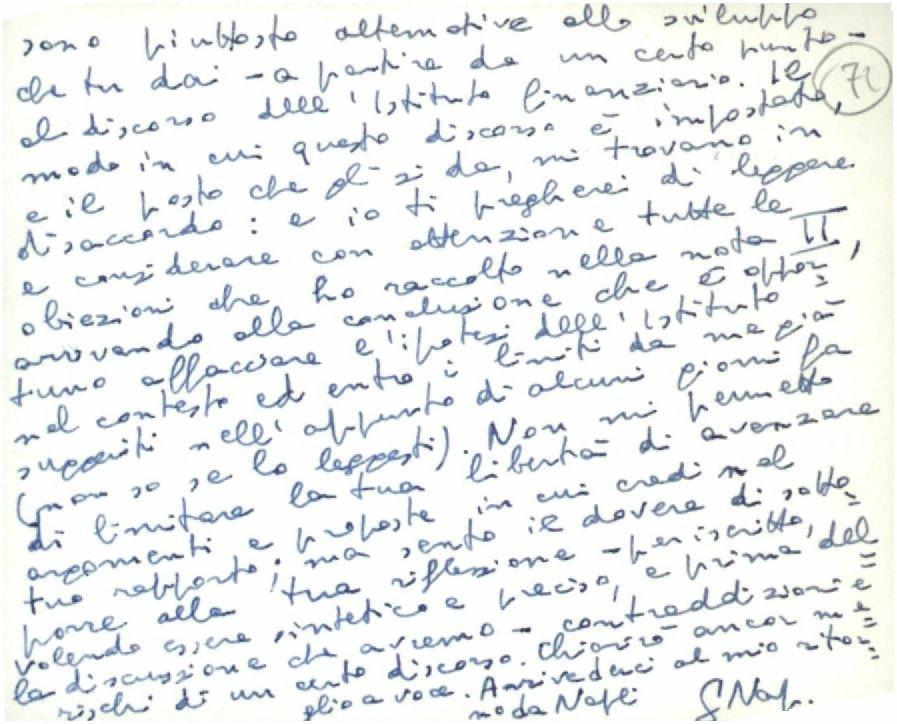 sono piuttosto alternative allo sviluppo
che tu dai – a partire da un certo punto –
al discorso dell'Istituto finanziario. Il
71
modo in cui questo discorso è impostato,
e il posto che gli si dà, mi trovano in
disaccordo: e io ti pregherei di leggere
e considerare con attenzione tutte le
obiezioni che ho raccolto nella nota II,
arrivando alla conclusione che è oppor=
tuno affacciare l'ipotesi dell'Istituto
nel contesto ed entro i limiti da me già
suggeriti nell'appunto di alcuni giorni fa
(non so se lo leggesti). Non mi permetto
di limitare la tua libertà di avanzare
argomenti e proposte in cui credi nel
tuo rapporto; ma sento il dovere di sotto=
porre alla tua riflessione – per iscritto,
volendo essere sintetico e preciso, e prima del=
la discussione che avremo – contraddizioni e
rischi di un certo discorso. Chiarirò ancor me=
glio a voce. Arrivederci al mio ritor=
no da Napoli
GNap.